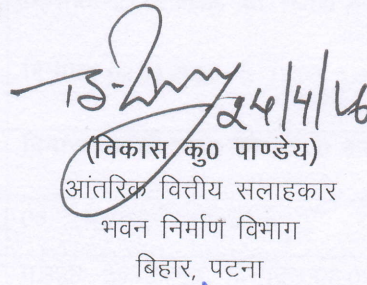 24/4/16
(विकास कु0 पाण्डेय)
आंतरिक वित्तीय सलाहकार
भवन निर्माण विभाग
बिहार, पटना